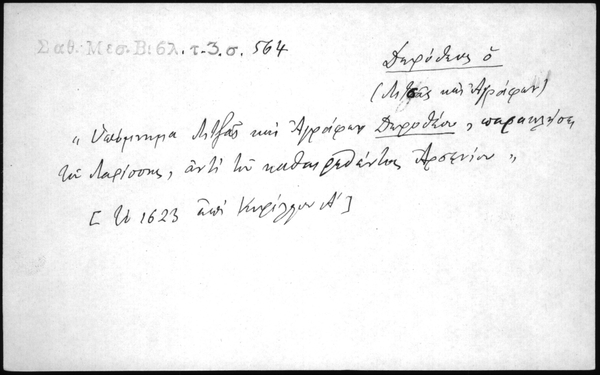 Σαθ. Μεσ. Βιβλ. τ. 3. σ. 564
Δωρόθεος ὁ
(Λιτζᾶς καὶ Ἀγράφων)
"Ὑπόμνημα Λιτζᾶς καὶ Ἀγράφων Δωροθέου, παρακλήσει
τοῦ Λαρίσσης, ἀντὶ τοῦ καθαιρεθέντος Ἀρσενίου"
[Τῷ 1623 ἐπὶ Κυρίλλου Α']